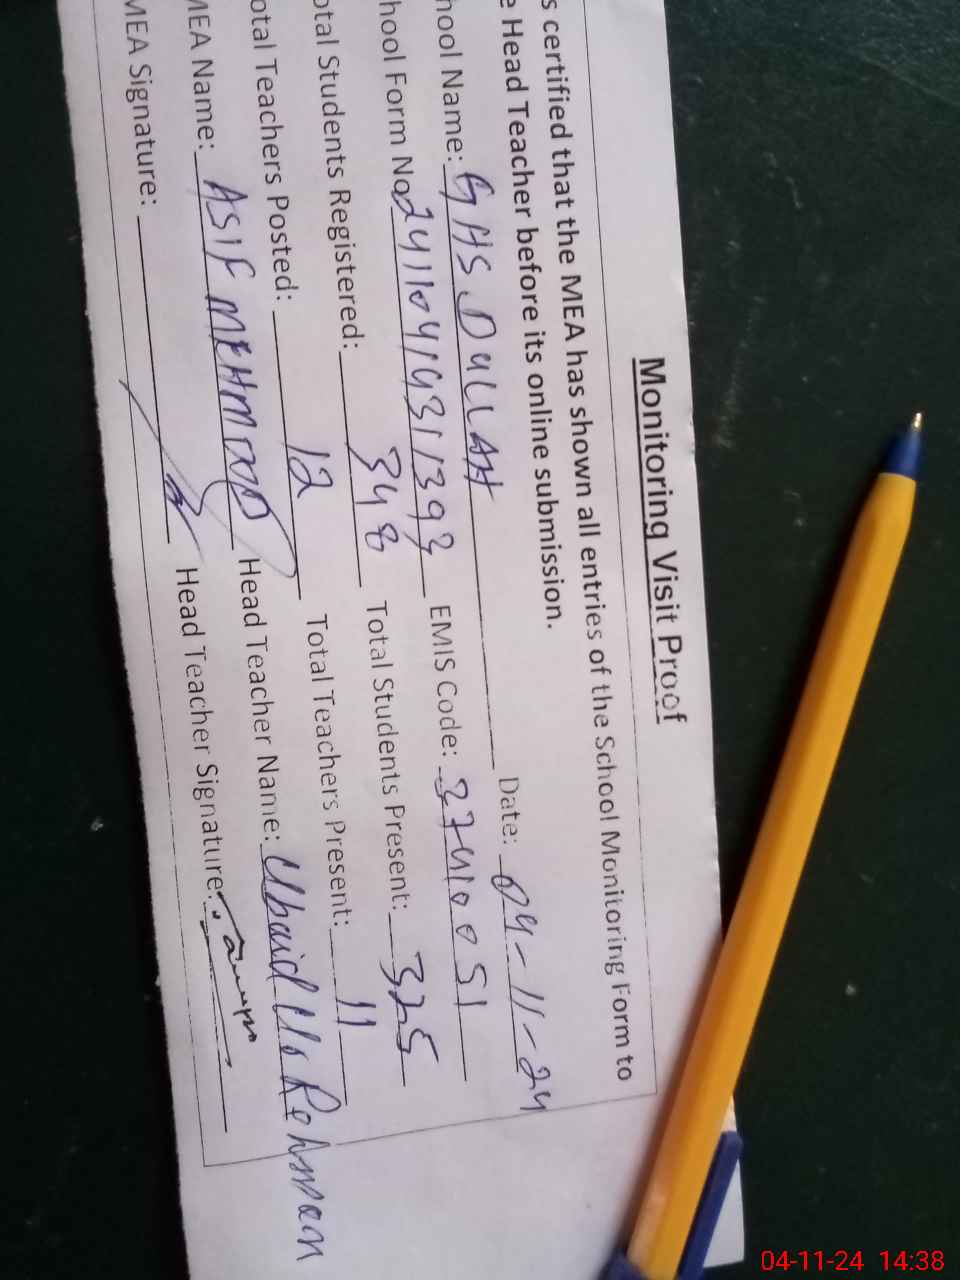 Monitoring Visit Proof
s certified that the MEA has shown all entries of the School Monitoring Form to
e Head Teacher before its online submission.
hool Name: GHS DULLAH Date: 04-11-24
hool Form No 24110414311393 EMIS Code: 37410051
otal Students Registered: 348 Total Students Present: 325
otal Teachers Posted: 12 Total Teachers Present: 11
MEA Name: ASIF MEHMOOD Head Teacher Name: Ubaid Ur Rehman
MEA Signature: Head Teacher Signature:
04-11-24 14:38